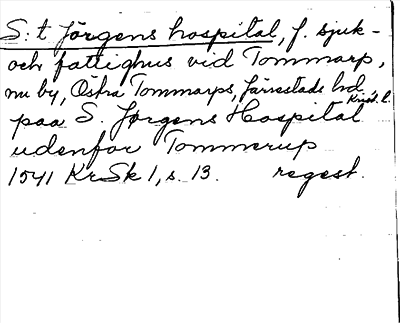 S:t Jörgens hospital, f. sjuk-
och fattighus vid Tommarp,
nu by, Östra Tommarps, Järrestads hd,
Krist. l.
paa S. Jørgens Hospital
udenfor Tommerup
1541 KrSk 1, s. 13. regest.